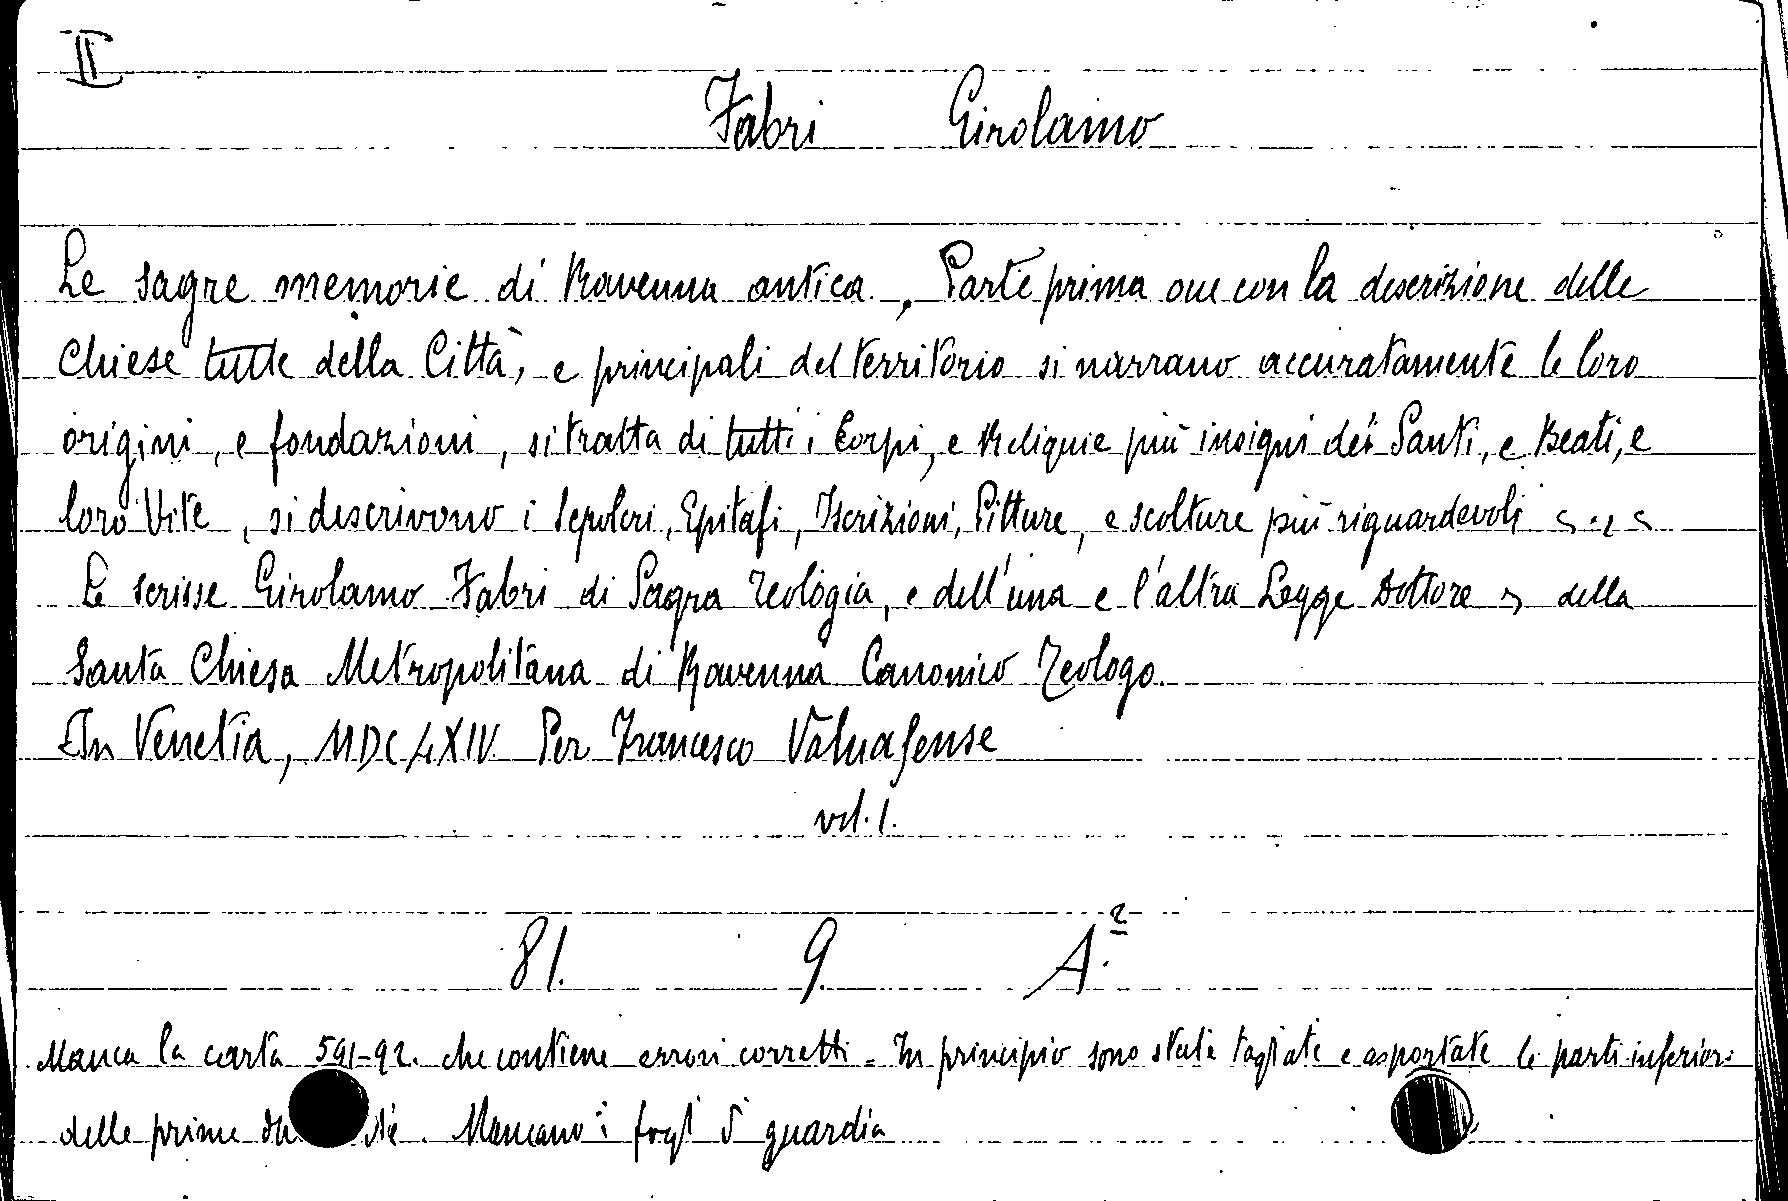 II
Fabri Girolamo
Le sagre memorie di Ravenna antica, Parte prima oue con la descrizione delle
Chiese tutte della Città, e principali del territorio si narrano accuratamente le loro
origini, e fondazioni, si tratta di tutti i Corpi, e Reliquie più insigni dei Santi, e Beati, e
loro Vite, si descrivono i Sepolcri, Epitafi, Iscrizioni, Pitture, e scolture più riguardevoli
Le scrisse Girolamo Fabri di Sagra Teologia, e dell'una e l'altra Legge Dottore della
Santa Chiesa Metropolitana di Ravenna Canonico Teologo.
In Venetia, MDCLXIV. Per Francesco Valuasense
vol. 1.
81. 9. A.2
Manca la carta 591-92. che contiene errori corretti = In principio sono state tagliate e asportate le parti inferiori
delle prime Mancano i fogli di guardia